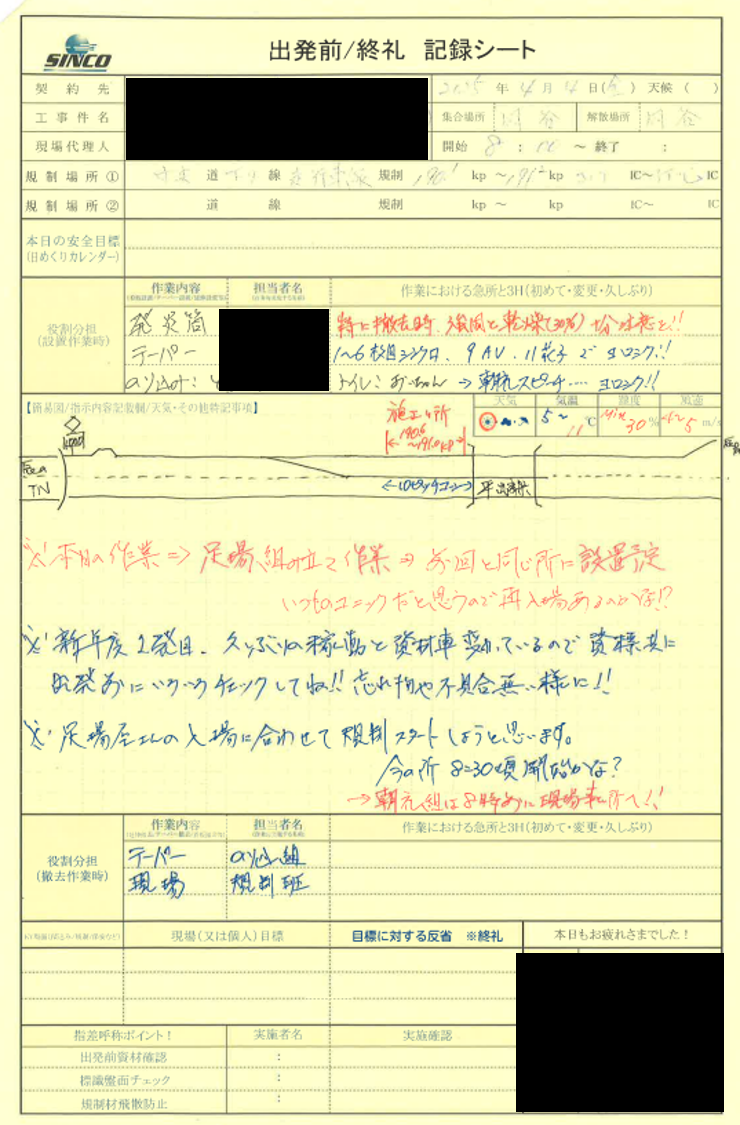 SINCO
出発前/終礼 記録シート
契約先 2025年4月4日(金) 天候( )
工事件名 集合場所 岡谷 解散場所 岡谷
現場代理人 開始 8: ～終了 :
規制場所① 道 下り 線 規制 kp ～ kp IC～ IC
規制場所② 道 線 規制 kp ～ kp IC～ IC
本日の安全目標
(日めくりカレンダー)
作業内容 担当者名 作業における急所と3H(初めて・変更・久しぶり)
役割分担
(設置作業時)
発炎筒 特に撤去時、強風と乾燥(30%) 十分注意を!!
テーパー 1～6枚目シンクロ、9AV、11花子でヨロシク!!
トイレ: おーちゃん → 朝礼スピーチ‥‥ ヨロシク!!
【簡易図/指示内容記載欄/天気・その他特記事項】
天気 気温 湿度 風速
5～11℃ Min 30% 5m/s
施工ヶ所
190.6
～191.0kp
TN
※本日の作業⇒足場組み立て作業⇒前回と同じ所に設置予定
いつものユニックだと思うので再入場あるのかな!?
※新年度2発目、久しぶりの稼働と資材車変わっているので資機共に
出発前にいつつチェックしてね!! 忘れ物や不具合無い様に!!
※足場屋さんの入場に合わせて規制スタートしようと思います。
今の所 8=30頃開始かな?
→朝礼組は8時前に現場事ム所へ!!
作業内容 担当者名 作業における急所と3H(初めて・変更・久しぶり)
役割分担
(撤去作業時)
テーパー のり込み組
現場 規制班
現場(又は個人)目標 目標に対する反省 ※終礼 本日もお疲れさまでした!
指差呼称ポイント! 実施者名 実施確認
出発前資材確認 :
標識盤面チェック :
規制材飛散防止 :